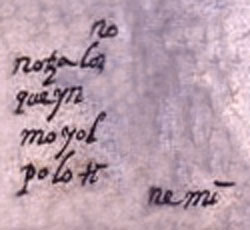 no
notzaloz
queyn
moyol
poloti nemi